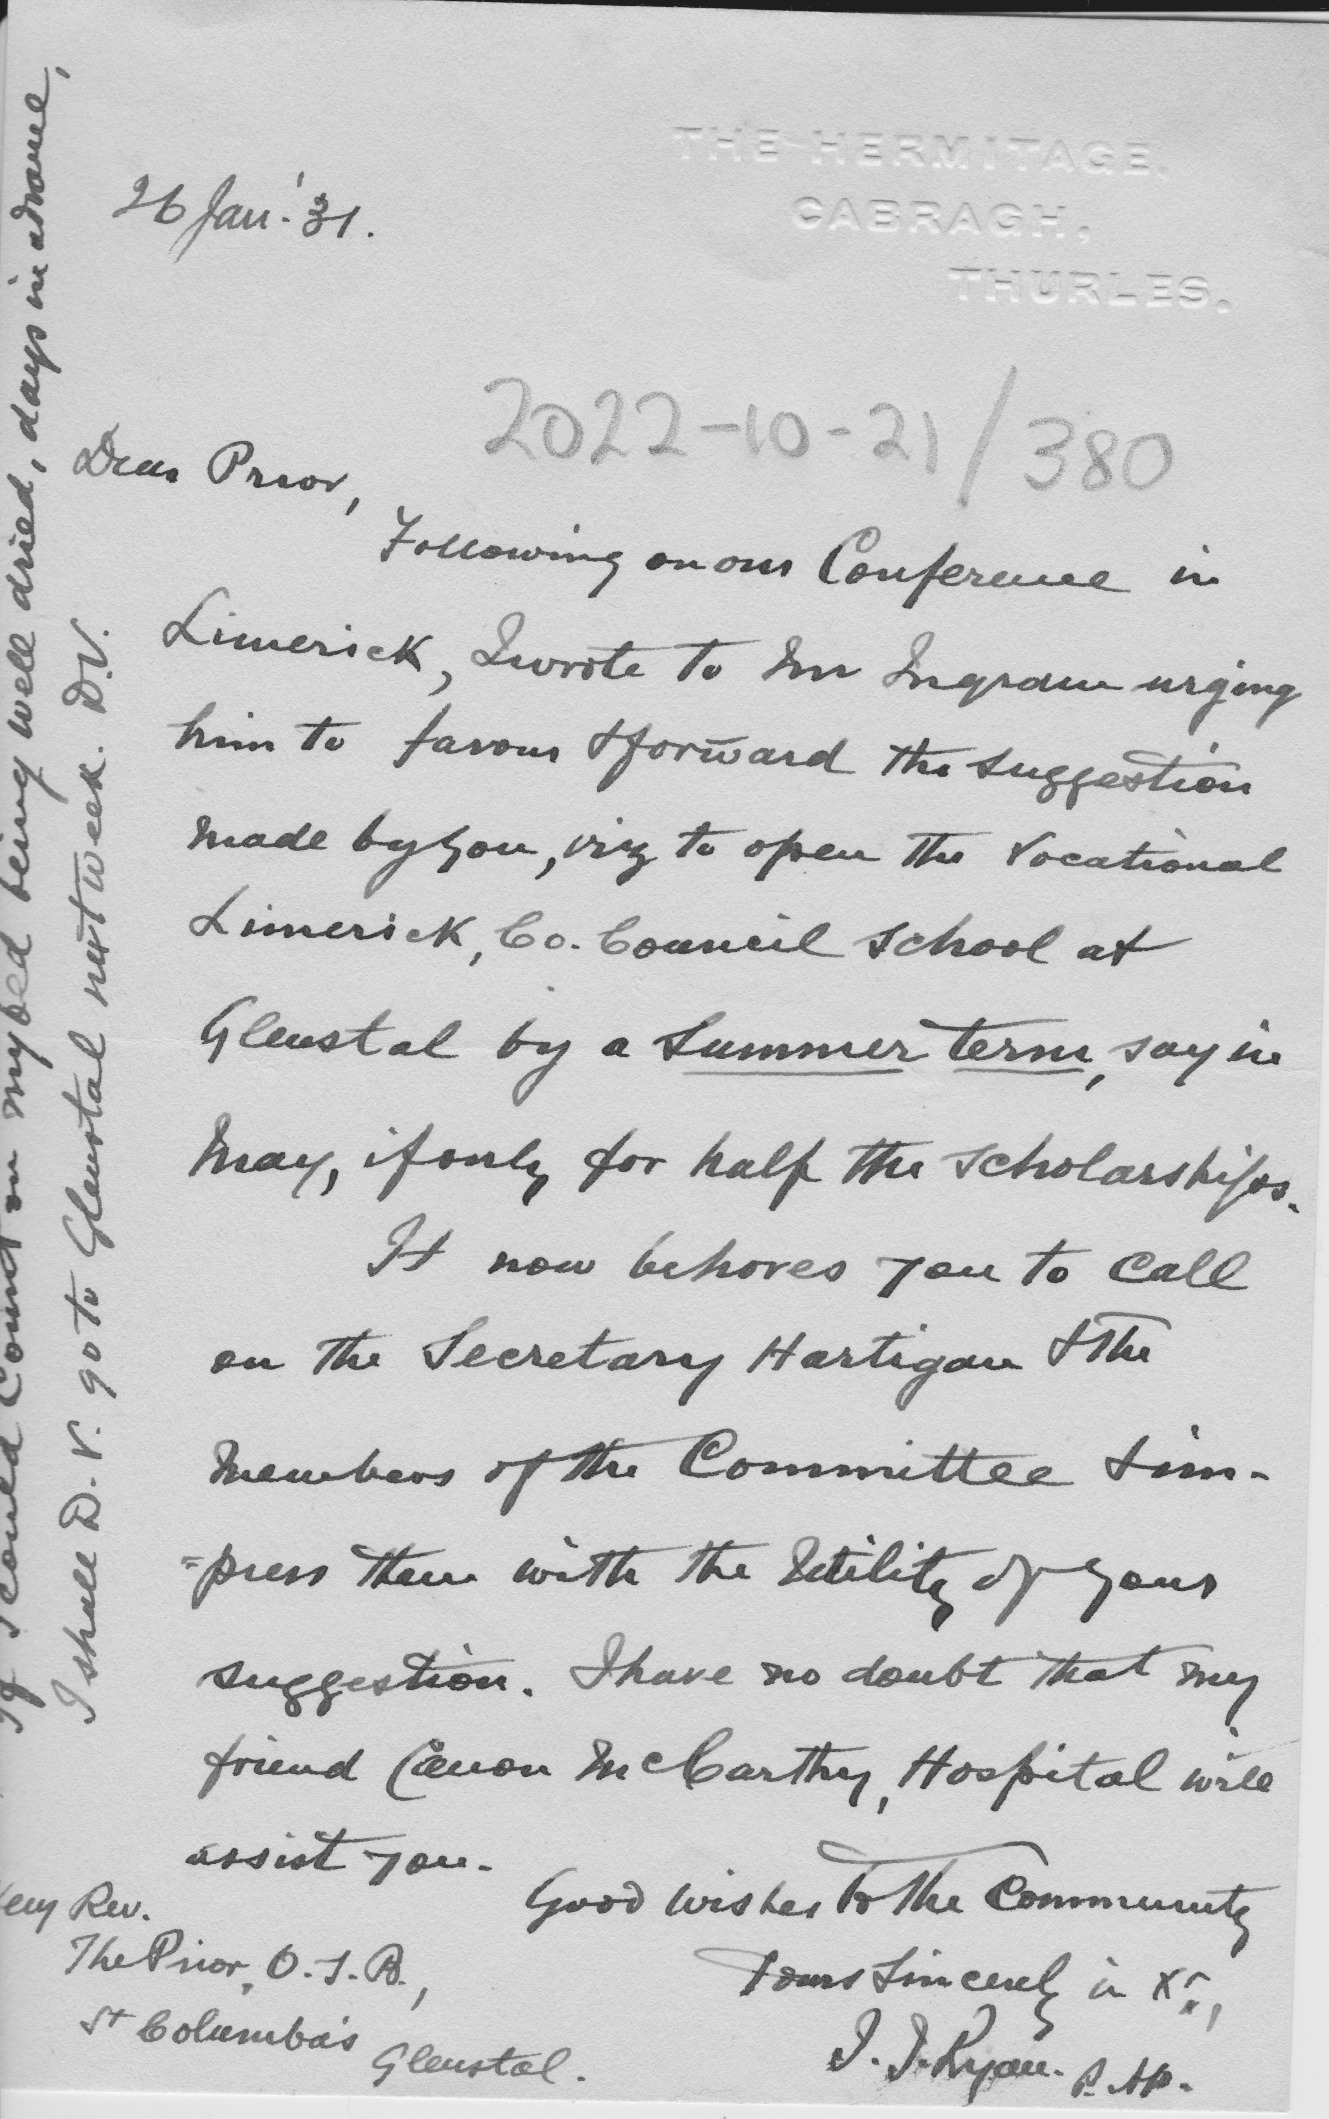 THE HERMITAGE.
CABRAGH,
THURLES.
26 Jan. '31.
2022-10-21/380
Dear Prior,
Following on our Conference in
Limerick, I wrote to Mr Ingram urging
him to favour & forward the suggestion
made by you, viz to open the Vocational
Limerick, Co. Council School at
Glenstal by a Summer term, say in
May, if only for half the scholarships.
It now behoves you to call
on the Secretary Hartigan & the
members of the Committee & im-
=press them with the utility of your
suggestion. I have no doubt that my
friend Canon McCarthy, Hospital will
assist you.
Good wishes to the Community
Yours sincerely in Xt.,
J. J. Ryan. P. AP.
Very Rev.
The Prior, O.S.B.,
St Columba's
Glenstal.
If I could count on my bed being well dried, days in advance,
I shall D.V. go to Glenstal next week. D.V.